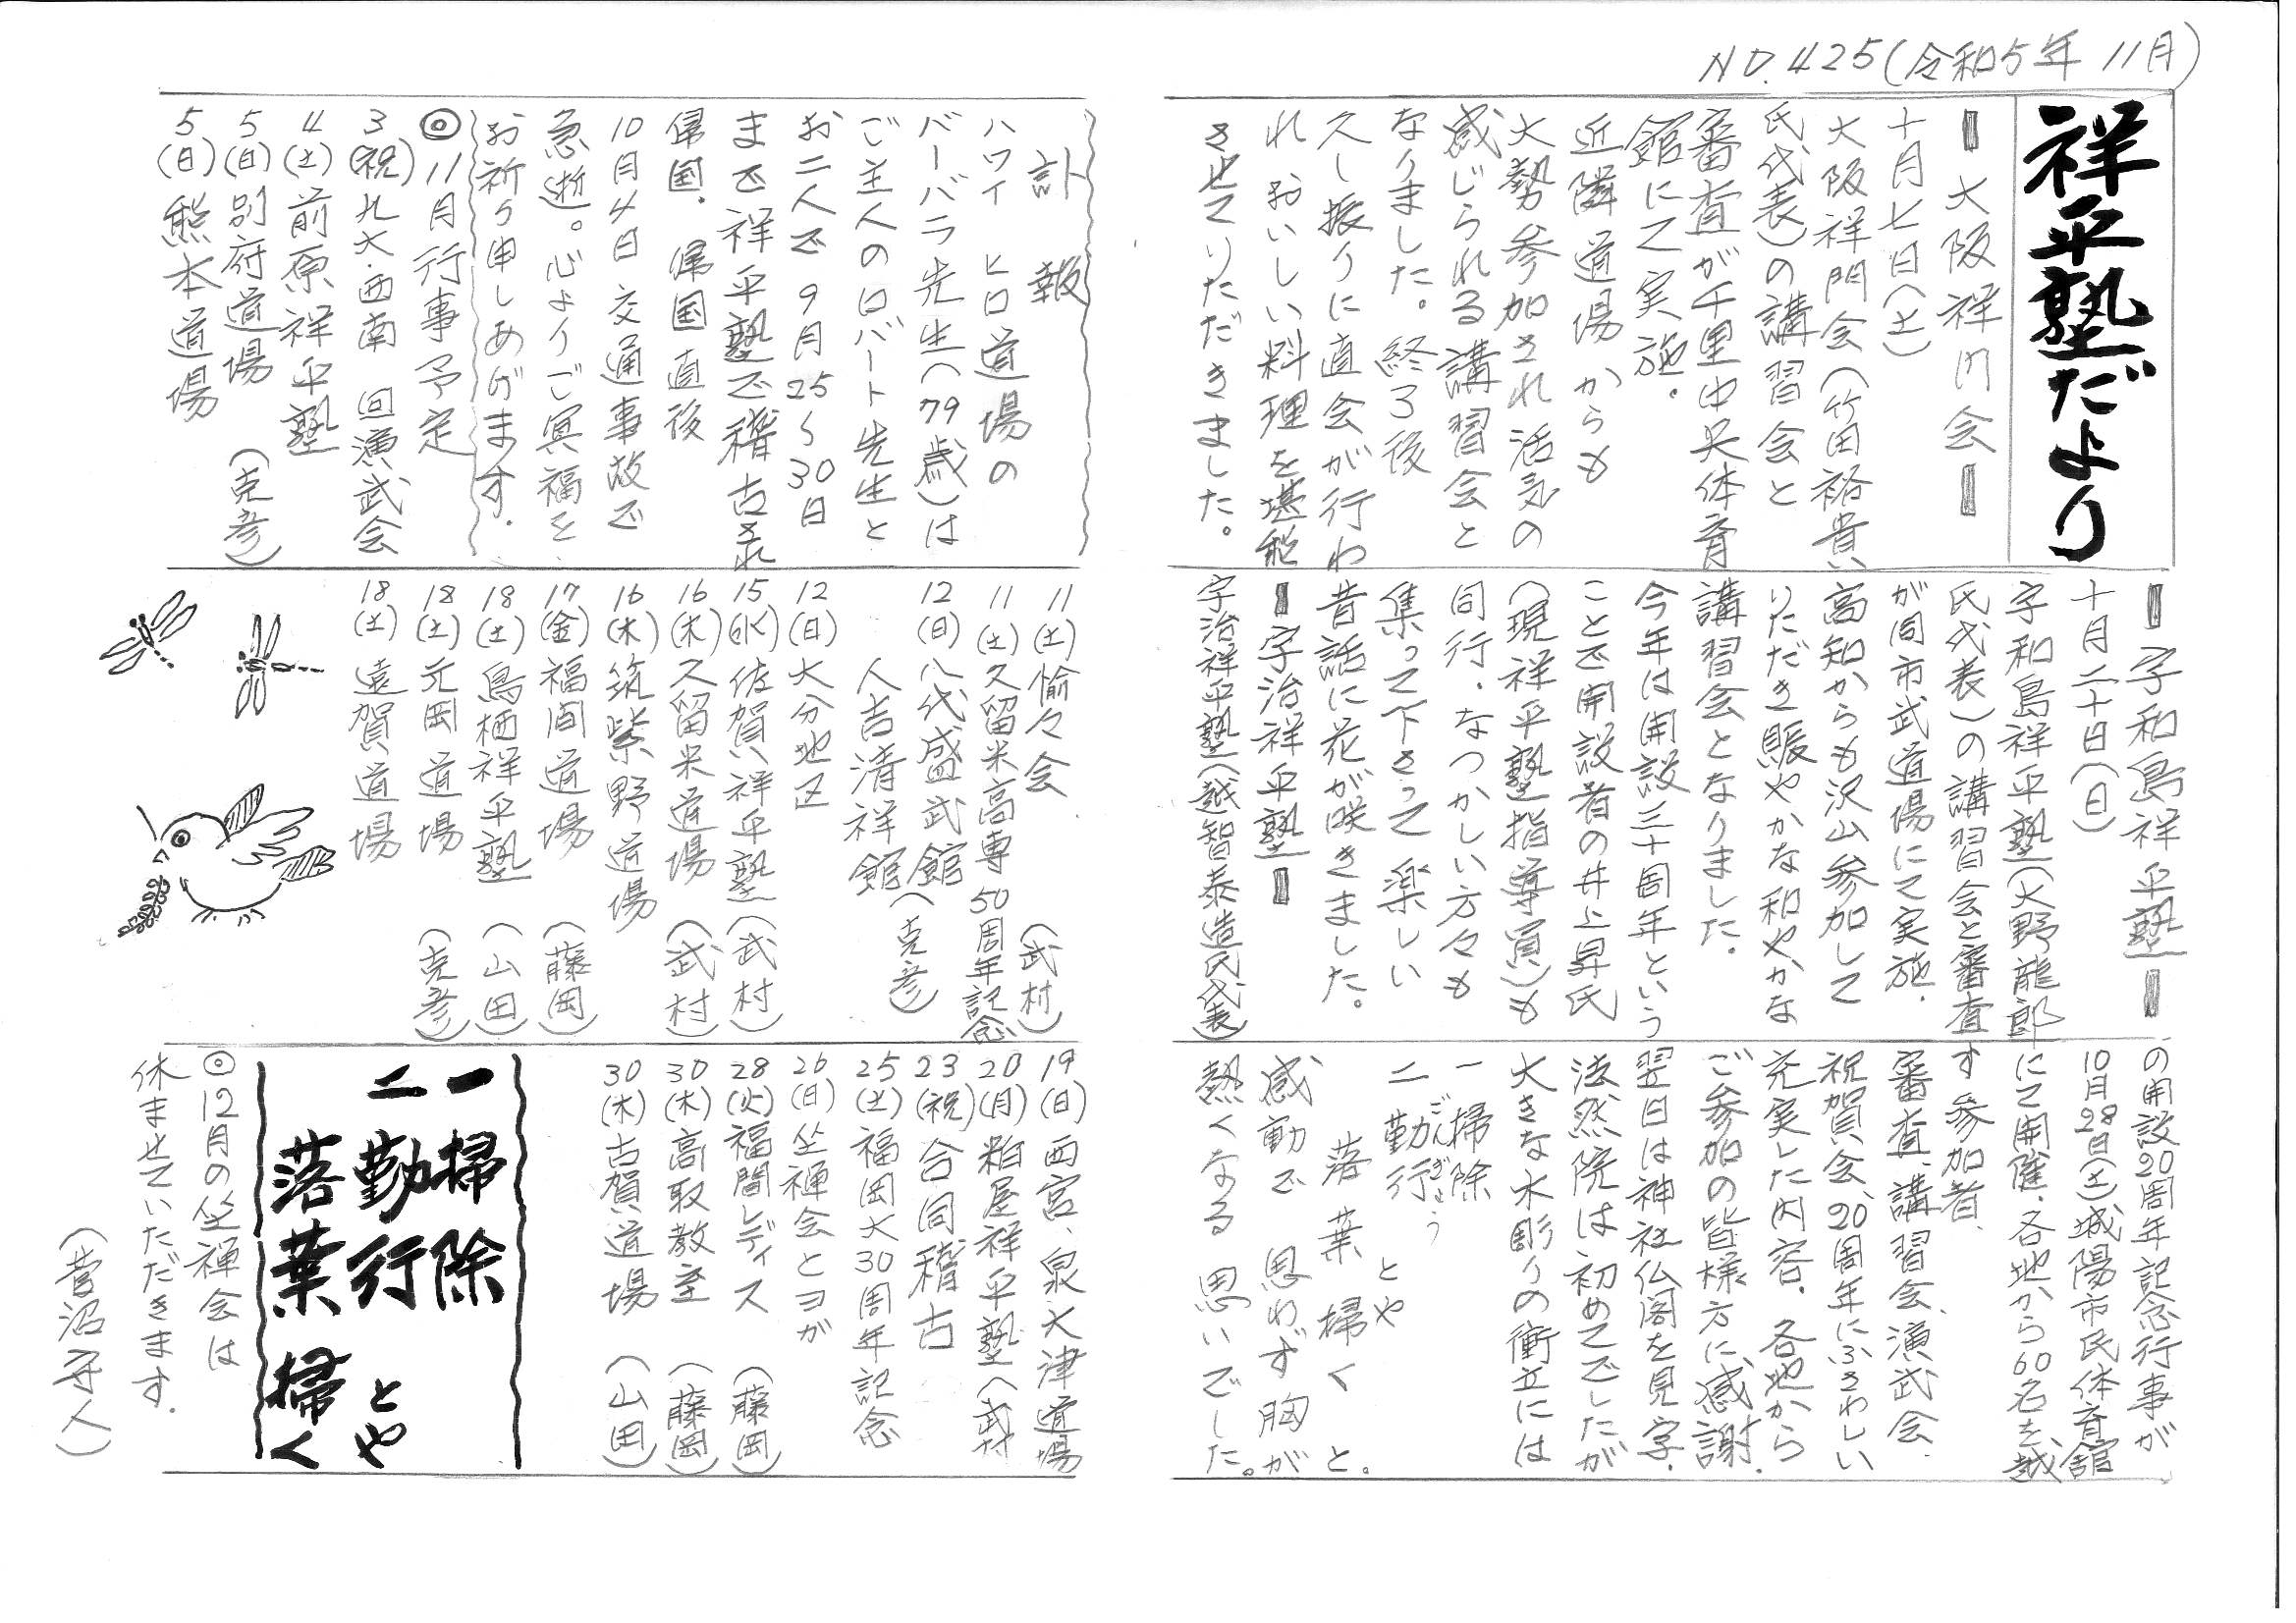 NO.425(令和5年 11月)
祥平塾だより
ー大阪祥門会ー
十月七日(土)
大阪祥門会(竹田裕貴
氏代表)の講習会と
審査が千里中央体育
館にて実施。
近隣道場からも
大勢参加され活気の
感じられる講習会と
なりました。終了後
久し振りに直会が行わ
れおいしい料理を堪能
させていただきました。
ー宇和島祥平塾ー
十月二十日(日)
宇和島祥平塾(大野龍郎
氏代表)の講習会と審査
が同市武道場にて実施。
高知からも沢山参加して
いただき賑やかな和やかな
講習会となりました。
今年は開設三十周年という
ことで開設者の井上昇氏
(現祥平塾指導員)も
同行。なつかしい方々も
集って下さって楽しい
昔話に花が咲きました。
ー宇治祥平塾ー
宇治祥平塾(越智泰造氏代表)
の開設20周年記念行事が
10月28日(土)城陽市民体育館
にて開催、各地から60名を越
す参加者、
審査、講習会、演武会、
祝賀会、20周年にふさわしい
充実した内容。各地から
ご参加の皆様方に感謝。
翌日は神社仏閣を見学。
法然院は初めてでしたが
大きな木彫りの衝立には
一 掃除
二 勤行 とや
ごんぎょう
落葉掃くと。
感動で 思わず胸が
熱くなる 思いでした。
訃報
ハワイ ヒロ道場の
バーバラ先生(79歳)は
ご主人のロバート先生と
お二人で 9月25〜30日
まで祥平塾で稽古され
帰国。帰国直後
10月4日交通事故で
急逝。心よりご冥福を
お祈り申しあげます。
◎11月行事予定
3(祝)九大・西南 回演武会
4(土)前原祥平塾
5(日)別府道場 (克彦)
5(日)熊本道場
11(土)愉々会 (武村)
11(土)久留米高専50周年記念
12(日)八代盛武館 (克彦)
人吉清祥館
12(日)大分地区
15(水)佐賀祥平塾(武村)
16(木)久留米道場 (武村)
16(木)筑紫野道場
17(金)福間道場 (藤岡)
18(土)鳥栖祥平塾 (山田)
18(土)元岡道場 (克彦)
18(土)遠賀道場
19(日)西宮、泉大津道場
20(月)粕屋祥平塾(武村)
23(祝)合同稽古
25(土)福岡大30周年記念
26(日)坐禅会とヨガ
28(火)福間レディス (藤岡)
30(木)高取教室 (藤岡)
30(木)古賀道場 (山田)
一 掃除
二 勤行 とや
落葉掃く
◎12月の坐禅会は
休ませていただきます。
(菅沼守人)